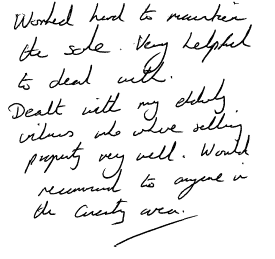 Worked hard to maintain
the sale. Very helpful
to deal with.
Dealt with my elderly
who where selling
property very well. Would
recommend to anyone in
the Coventry area.